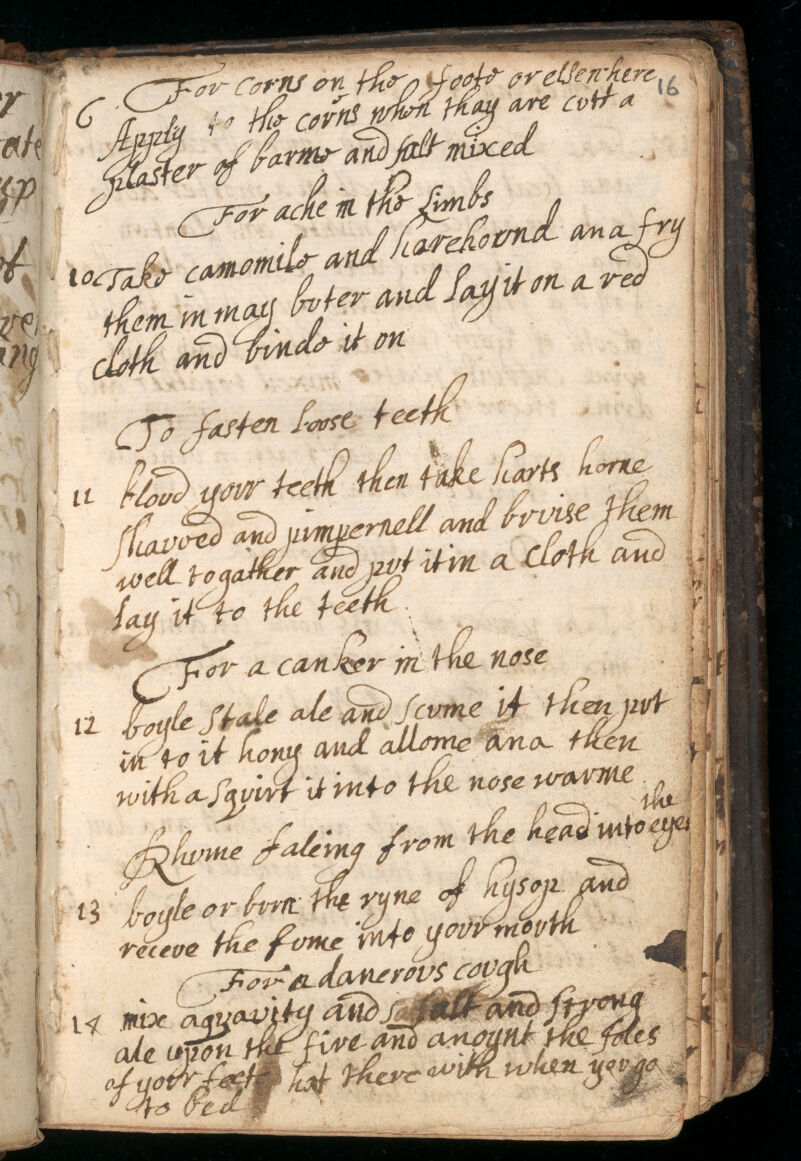 r
ate
up
of
ver
ang
16
For corns on the foote or elsenhere
6. Apply to the corns when thay are cutt a
plaster of barme and salt mixed
For ache in the Limbs
10 Take camomile and harehovnd ana fry
them in may bvter and Lay it on a red
cloth and binde it on
To fasten Loose teeth
11 blovd yovr teeth then take harts horne
shaved and pimpernell and brvise them
well togather and pvt it in a cloth and
Lay it to the teeth
For a canker in the nose
12 boyle stale ale and scvme it then pvt
in to it hony and allome ana then
with a sqvirt it into the nose warme
Rhvme faleing from the head into the eyes
13 boyle or bvrn the ryne of hysop and
receve the fvme into yovr movth
For a danerovs covgh
14 mix aqvavity and salt and strong
ale vpon the fire and anoynt the soles
of yovr feet hot there with when yov go
to bed